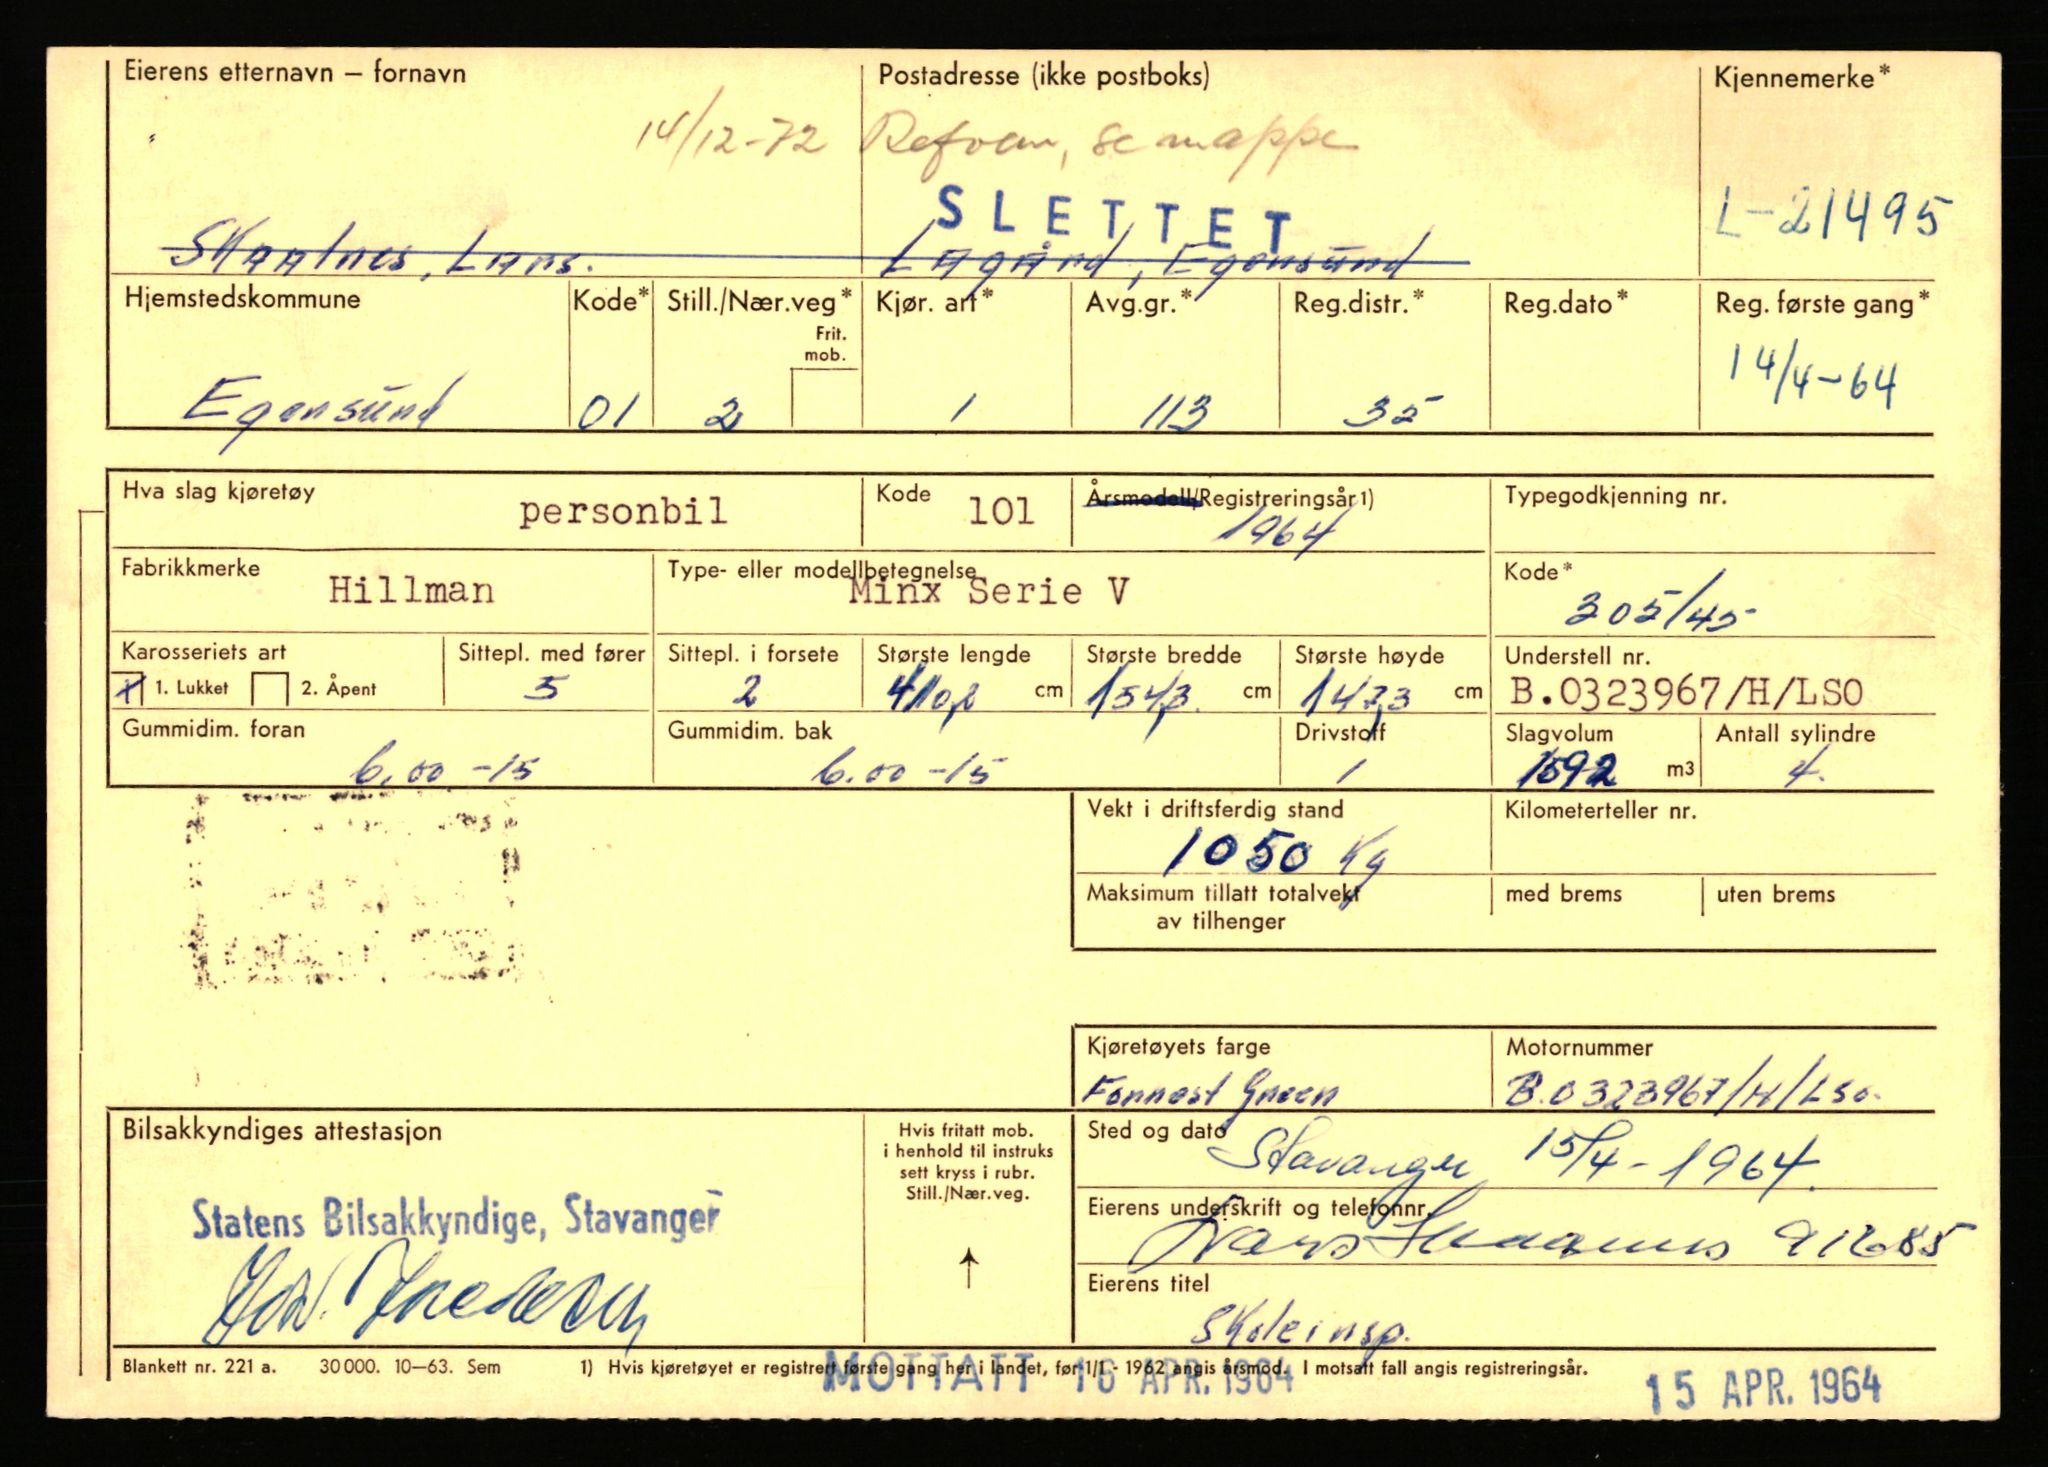 Eierens etternavn – fornavn Postadresse (ikke postboks) Kjennemerke*
14/12-72 se mappe
SLETTET
L-21495
Skaalnes, Lars. Lagård, Egersund
Hjemstedskommune Kode* Still./Nær.veg* Kjør. art* Avg.gr.* Reg.distr.* Reg.dato* Reg. første gang*
Frit.
mob.
14/4-64
Egersund 01 2 1 113 35
Hva slag kjøretøy personbil Kode 101 Årsmodell/Registreringsår 1) Typegodkjenning nr.
1964
Fabrikkmerke Hillman Type- eller modellbetegnelse Minx Serie V Kode*
305/45
Karosseriets art Sittepl. med fører Sittepl. i forsete Største lengde Største bredde Største høyde Understell nr.
x 1. Lukket 2. Åpent 5 2 410,2 cm 154,3 cm 147,3 cm B.0323967/H/LSO
Gummidim. foran Gummidim. bak Drivstoff Slagvolum Antall sylindre
6.00-15 6.00-15 1 1592 m3 4.
Vekt i driftsferdig stand Kilometerteller nr.
1050 Kg
Maksimum tillatt totalvekt med brems uten brems
av tilhenger
Kjøretøyets farge Motornummer
Forrest Green B.0323967/H/LSO.
Bilsakkyndiges attestasjon Hvis fritatt mob. Sted og dato
i henhold til instruks Stavanger 15/4-1964.
sett kryss i rubr.
Still./Nær.veg.
Statens Bilsakkyndige, Stavanger Eierens underskrift og telefonnr.
Lars Skaalnes 91685
Eierens titel
Skoleinsp.
Blankett nr. 221 a. 30000. 10–63. Sem 1) Hvis kjøretøyet er registrert første gang her i landet, før 1/1 - 1962 angis årsmod. I motsatt fall angis registreringsår.
MOTTATT 16 APR. 1964 15 APR. 1964